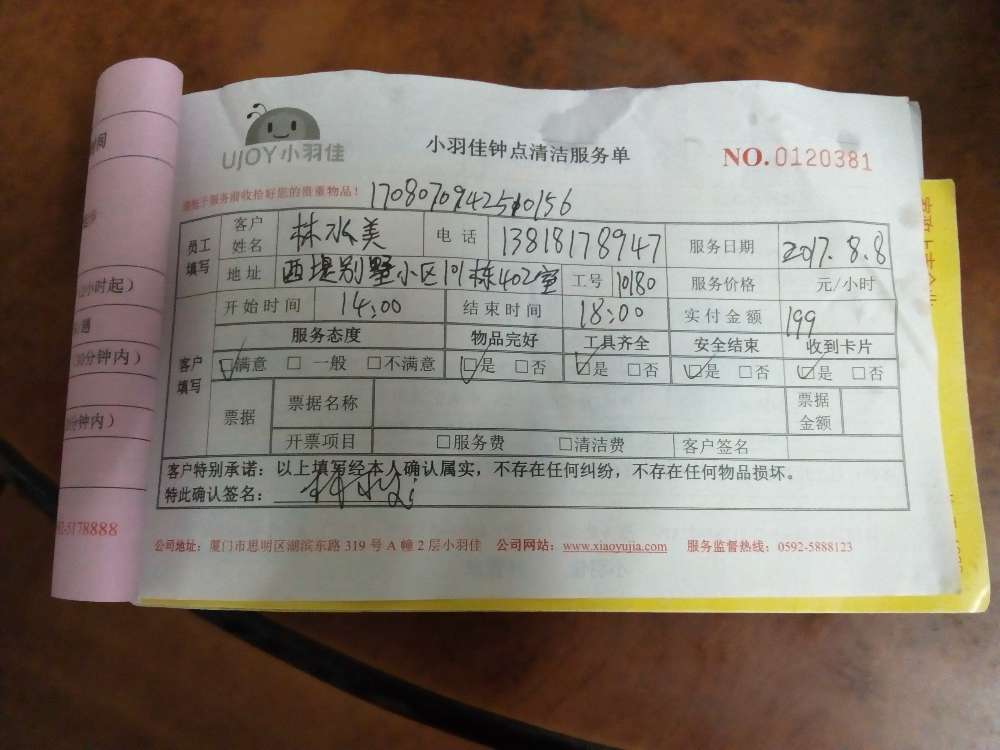 UJOY小羽佳
小羽佳钟点清洁服务单
NO.0120381
收拾好您的贵重物品！
员工填写 客户姓名 林水美 电话 13818178947 服务日期 2017.8.8
地址 西堤别墅小区101栋402室 工号 10180 服务价格 元/小时
开始时间 14:00 结束时间 18:00 实付金额 199
客户填写 服务态度 物品完好 工具齐全 安全结束 收到卡片
☑满意 □一般 □不满意 ☑是 □否 ☑是 □否 ☑是 □否 ☑是 □否
票据 票据名称 票据金额
开票项目 □服务费 □清洁费 客户签名
客户特别承诺：以上填写经本人确认属实，不存在任何纠纷，不存在任何物品损坏。
特此确认签名：
公司地址：厦门市思明区湖滨东路 319 号 A 幢 2 层小羽佳 公司网站：www.xiaoyujia.com 服务监督热线：0592-5888123
小时起）
30分钟内）
分钟内）
5178888